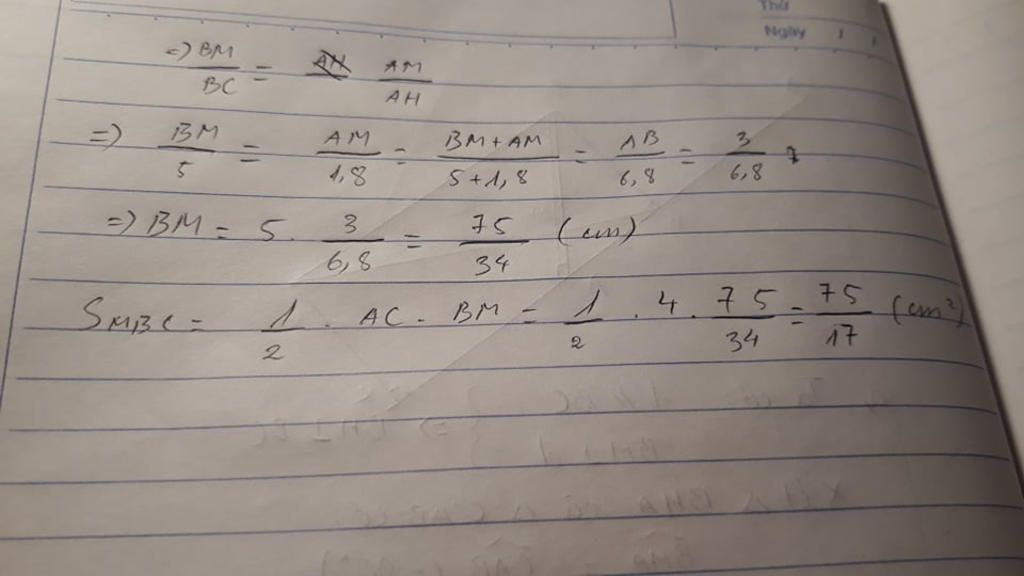 Thứ
Ngày
=> BM/BC = AM/AH
=> BM/5 = AM/1,8 = BM+AM/5+1,8 = AB/6,8 = 3/6,8
=> BM = 5. 3/6,8 = 75/34 (cm)
SMBC = 1/2 . AC . BM = 1/2 . 4. 75/34 = 75/17 (cm²)